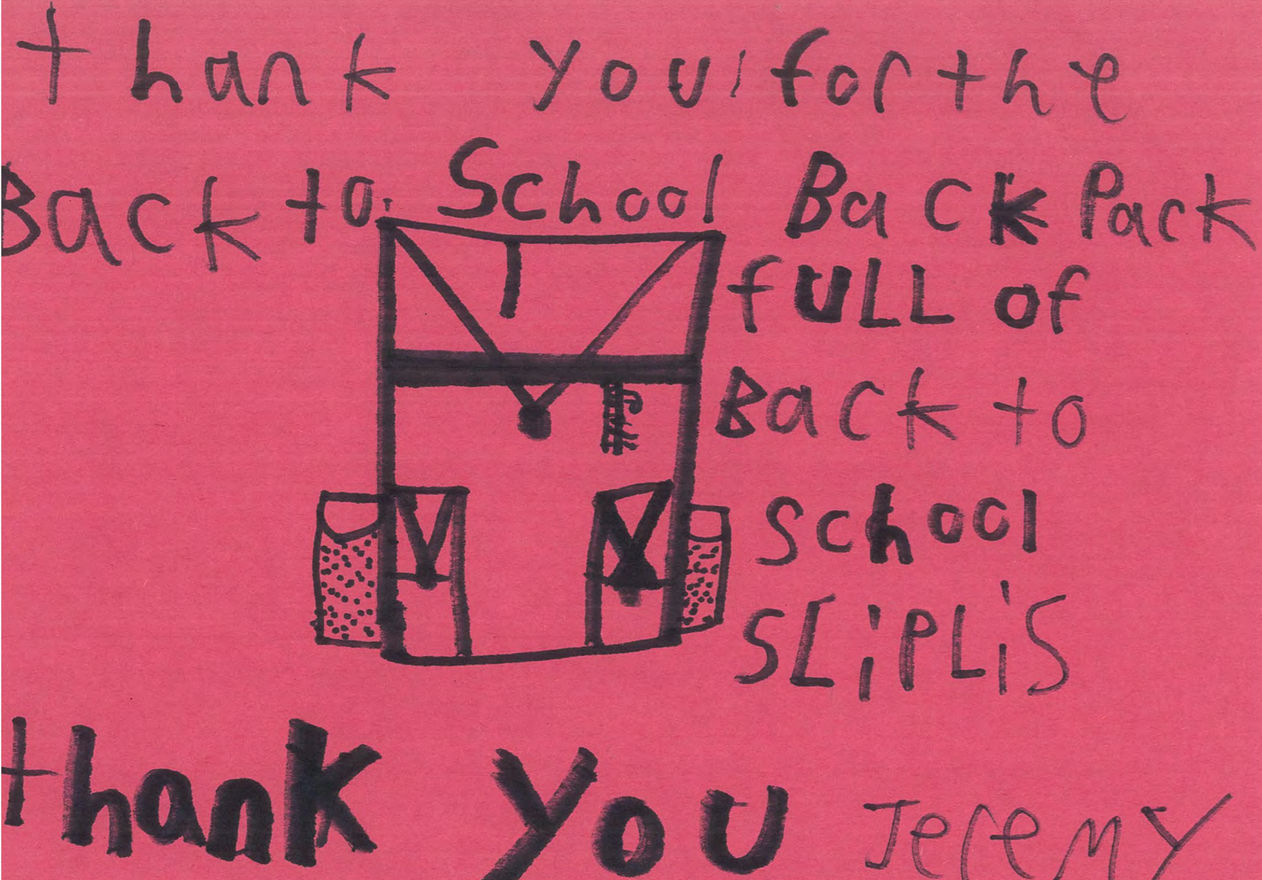 thank you for the
Back to School Back Pack
fULL of
Back to
school
SLiPLiS
thank you Jeremy